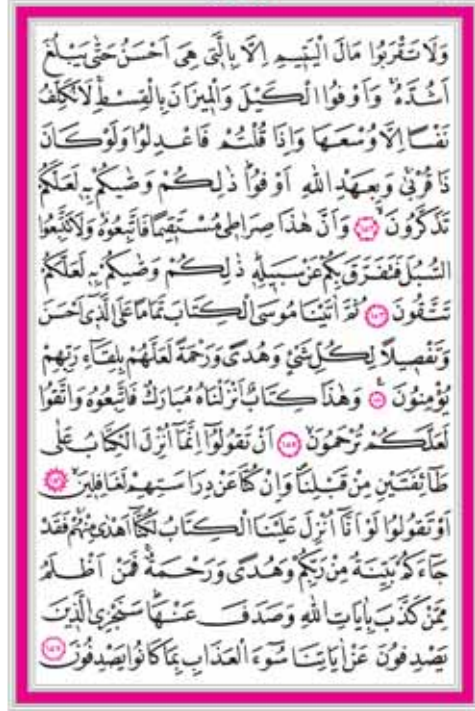 وَلَا تَقْرَبُوا مَالَ الْيَتِيمِ اِلَّا بِالَّتِى هِىَ اَحْسَنُ حَتّٰى يَبْلُغَ
اَشُدَّهُۚ وَاَوْفُوا الْكَيْلَ وَالْمِيزَانَ بِالْقِسْطِۚ لَا نُكَلِّفُ
نَفْسًا اِلَّا وُسْعَهَا وَاِذَا قُلْتُمْ فَاعْدِلُوا وَلَوْ كَانَ
ذَا قُرْبٰىۚ وَبِعَهْدِ اللّٰهِ اَوْفُواۜ ذٰلِكُمْ وَصّٰيكُمْ بِهٖ لَعَلَّكُمْ
تَذَكَّرُونَۙ ﴿١٥٢﴾ وَاَنَّ هٰذَا صِرَاطٖى مُسْتَقٖيمًا فَاتَّبِعُوهُۚ وَلَا تَتَّبِعُوا
السُّبُلَ فَتَفَرَّقَ بِكُمْ عَنْ سَبٖيلِهٖۜ ذٰلِكُمْ وَصّٰيكُمْ بِهٖ لَعَلَّكُمْ
تَتَّقُونَ ﴿١٥٣﴾ ثُمَّ اٰتَيْنَا مُوسَى الْكِتَابَ تَمَامًا عَلَى الَّذٖٓى اَحْسَنَ
وَتَفْصٖيلًا لِكُلِّ شَىْءٍ وَهُدًى وَرَحْمَةً لَعَلَّهُمْ بِلِقَٓاءِ رَبِّهِمْ
يُؤْمِنُونَ ﴿١٥٤﴾ وَهٰذَا كِتَابٌ اَنْزَلْنَاهُ مُبَارَكٌ فَاتَّبِعُوهُ وَاتَّقُوا
لَعَلَّكُمْ تُرْحَمُونَۙ ﴿١٥٥﴾ اَنْ تَقُولُٓوا اِنَّمَٓا اُنْزِلَ الْكِتَابُ عَلٰى
طَٓائِفَتَيْنِ مِنْ قَبْلِنَا وَاِنْ كُنَّا عَنْ دِرَاسَتِهِمْ لَغَافِلٖينَۙ ﴿١٥٦﴾
اَوْ تَقُولُوا لَوْ اَنَّٓا اُنْزِلَ عَلَيْنَا الْكِتَابُ لَكُنَّٓا اَهْدٰى مِنْهُمْۚ فَقَدْ
جَٓاءَكُمْ بَيِّنَةٌ مِنْ رَبِّكُمْ وَهُدًى وَرَحْمَةٌۚ فَمَنْ اَظْلَمُ
مِمَّنْ كَذَّبَ بِاٰيَاتِ اللّٰهِ وَصَدَفَ عَنْهَاۜ سَنَجْزِى الَّذٖينَ
يَصْدِفُونَ عَنْ اٰيَاتِنَا سُٓوءَ الْعَذَابِ بِمَا كَانُوا يَصْدِفُونَ ﴿١٥٧﴾